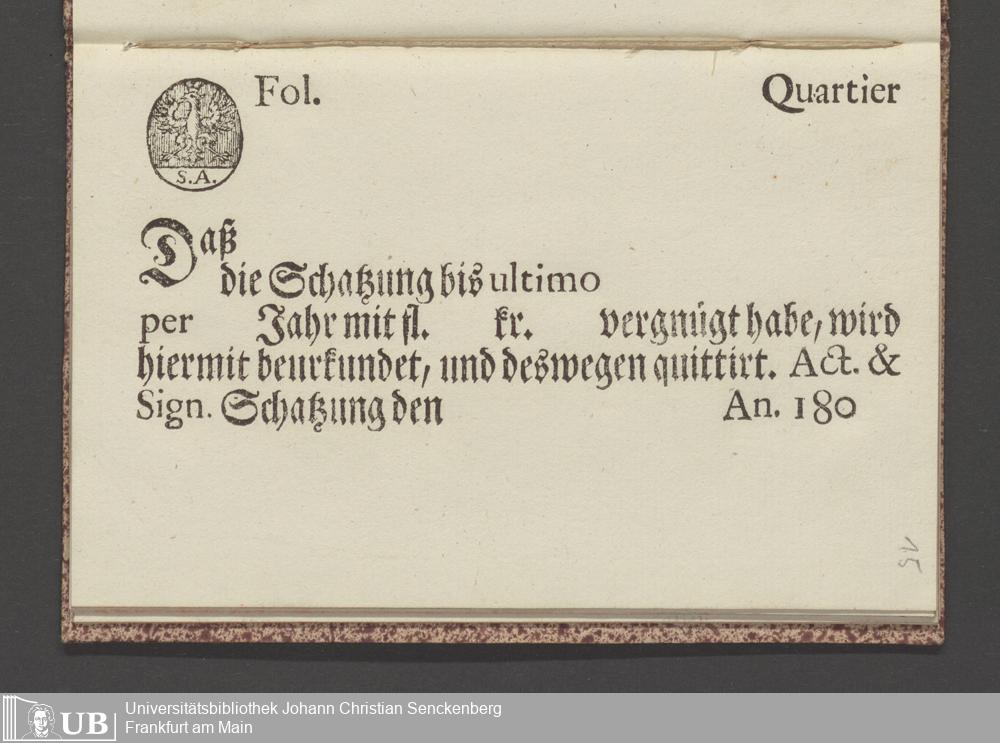 Fol. Quartier
S.A.
Daß
die Schatzung bis ultimo
per Jahr mit fl. kr. vergnügt habe, wird
hiermit beurkundet, und deswegen quittirt. Act. &
Sign. Schatzung den An. 180
15
UB Universitätsbibliothek Johann Christian Senckenberg
Frankfurt am Main